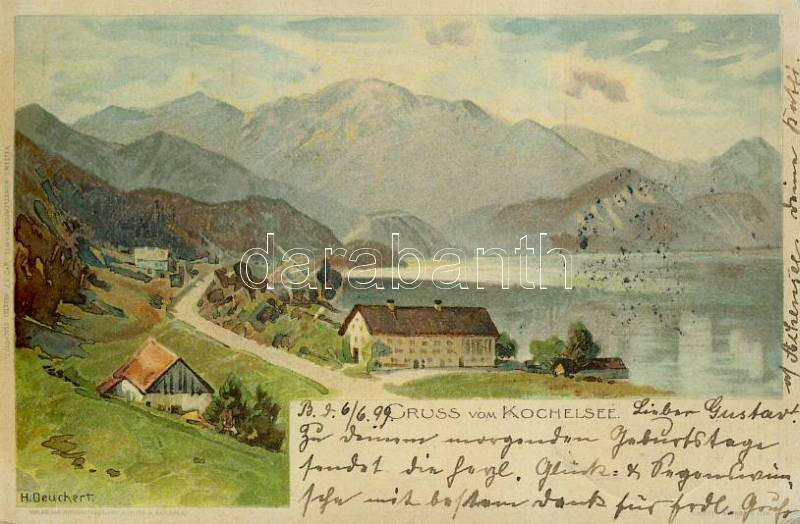 B. d. 6/6.99.
GRUSS VOM KOCHELSEE.
Lieber Gustav!
Zu deinem morgenden Geburtstage
sendet die herzl. Glück- & Segenswün-
sche mit bestem Dank für frdl. Gruß
deine
H. Deuchert.
darabanth